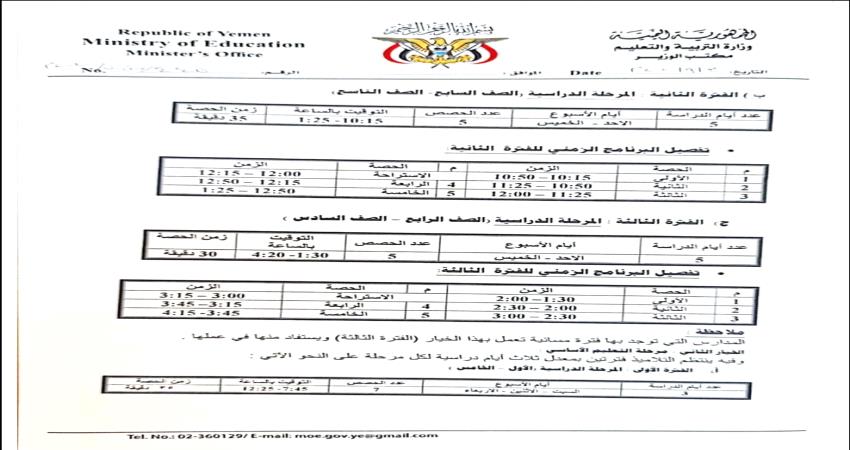 بسم الله الرحمن الرحيم
Republic of Yemen
Ministry of Education
Minister's Office
No.
الجمهورية اليمنية
وزارة التربية والتعليم
مكتب الوزير
التاريخ: Date
الموافق:
الرقم:
ب ) الفترة الثانية : المرحلة الدراسية (الصف السابع- الصف التاسع)
عدد أيام الدراسة أيام الأسبوع عدد الحصص التوقيت بالساعة زمن الحصة
5 الاحد - الخميس 5 10:15- 1:25 35 دقيقة
• تفصيل البرنامج الزمني للفترة الثانية:
م الحصة الزمن م الحصة الزمن
1 الأولى 10:15– 10:50 الاستراحة 12:00 – 12:15
2 الثانية 10:50 – 11:25 4 الرابعة 12:15 – 12:50
3 الثالثة 11:25 – 12:00 5 الخامسة 12:50 – 1:25
ج ) الفترة الثالثة : المرحلة الدراسية (الصف الرابع – الصف السادس )
عدد أيام الدراسة أيام الأسبوع عدد الحصص التوقيت بالساعة زمن الحصة
5 الاحد - الخميس 5 1:30- 4:20 30 دقيقة
• تفصيل البرنامج الزمني للفترة الثالثة:
م الحصة الزمن م الحصة الزمن
1 الأولى 1:30– 2:00 الاستراحة 3:00 – 3:15
2 الثانية 2:00 – 2:30 4 الرابعة 3:15– 3:45
3 الثالثة 2:30 – 3:00 5 الخامسة 3:45- 4:15
ملاحظة :
المدارس التي توجد بها فترة مسائية تعمل بهذا الخيار (الفترة الثالثة) ويستفاد منها في عملها .
الخيار الثاني - مرحلة التعليم الأساسي
وفيه ينتظم التلاميذ فترتين بمعدل ثلاث أيام دراسية لكل مرحلة على النحو الآتي :
أ. الفترة الأولى - المرحلة الدراسية (الأول - الخامس )
عدد أيام الدراسة أيام الأسبوع عدد الحصص التوقيت بالساعة زمن الحصة
3 السبت - الاثنين - الاربعاء 7 7:45- 12:25 دقيقة
Tel. No.: 02-360129/ E-mail: moe.gov.ye@gmail.com